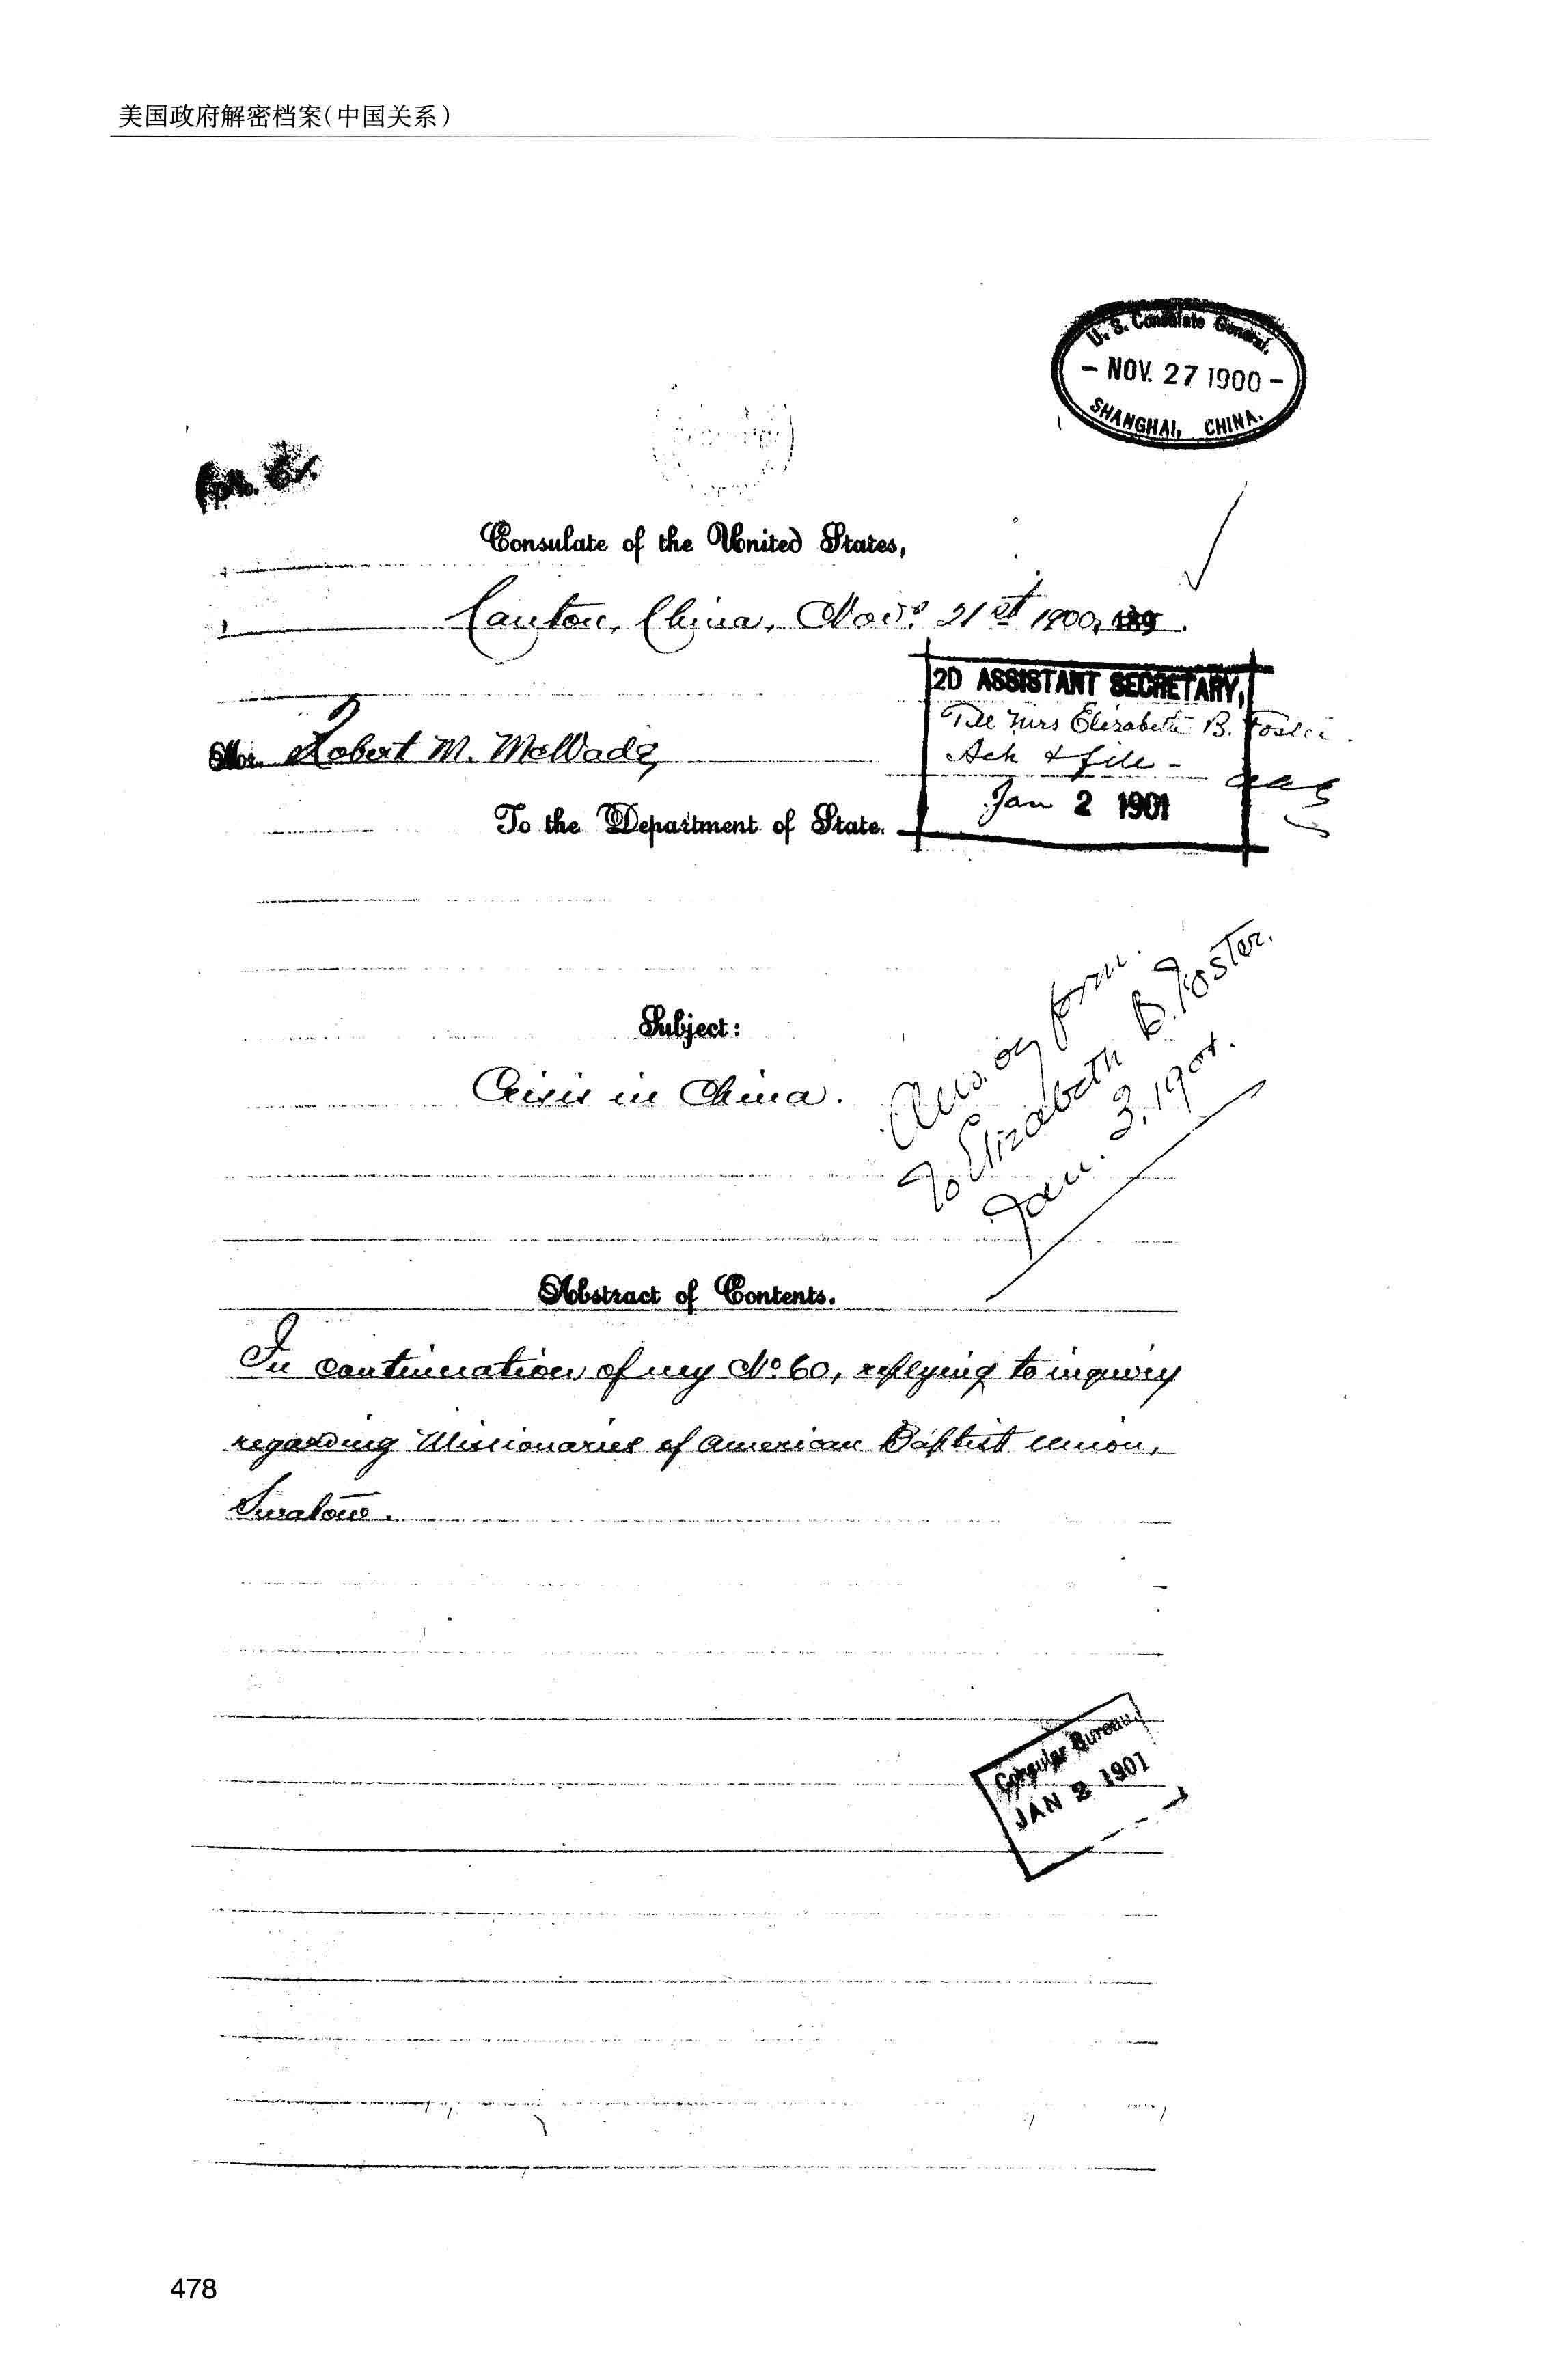 美国政府解密档案(中国关系)
U.S. Consulate General,
- NOV. 27 1900 -
SHANGHAI, CHINA.
Consulate of the United States,
Canton, China, Nov. 21st 1900, 189 .
2D ASSISTANT SECRETARY,
Tell Mrs Elizabeth B. Foster.
Ack & file -
Jan 2 1901
Mr. Robert M. McWade,
To the Department of State.
Subject:
Crisis in China.
Ans. by form.
To Elizabeth B. Foster.
Jan. 3, 1901.
Abstract of Contents.
In continuation of my No 60, replying to inquiry
regarding Missionaries of American Baptist Union,
Swatow.
Consular Bureau,
JAN 2 1901
478